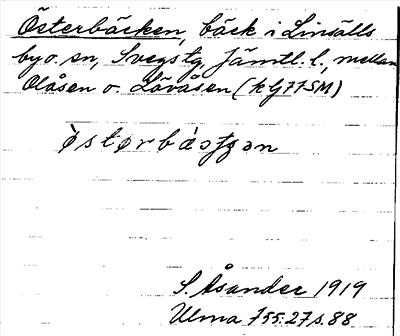 Österbäcken, bäck i Linsälls
by o. sn, Svegs tg, Jämtl. l., mellan
Olåsen o. Lövåsen (k G77SM)
S. Åsander 1919
Ulma 755:27 s. 88